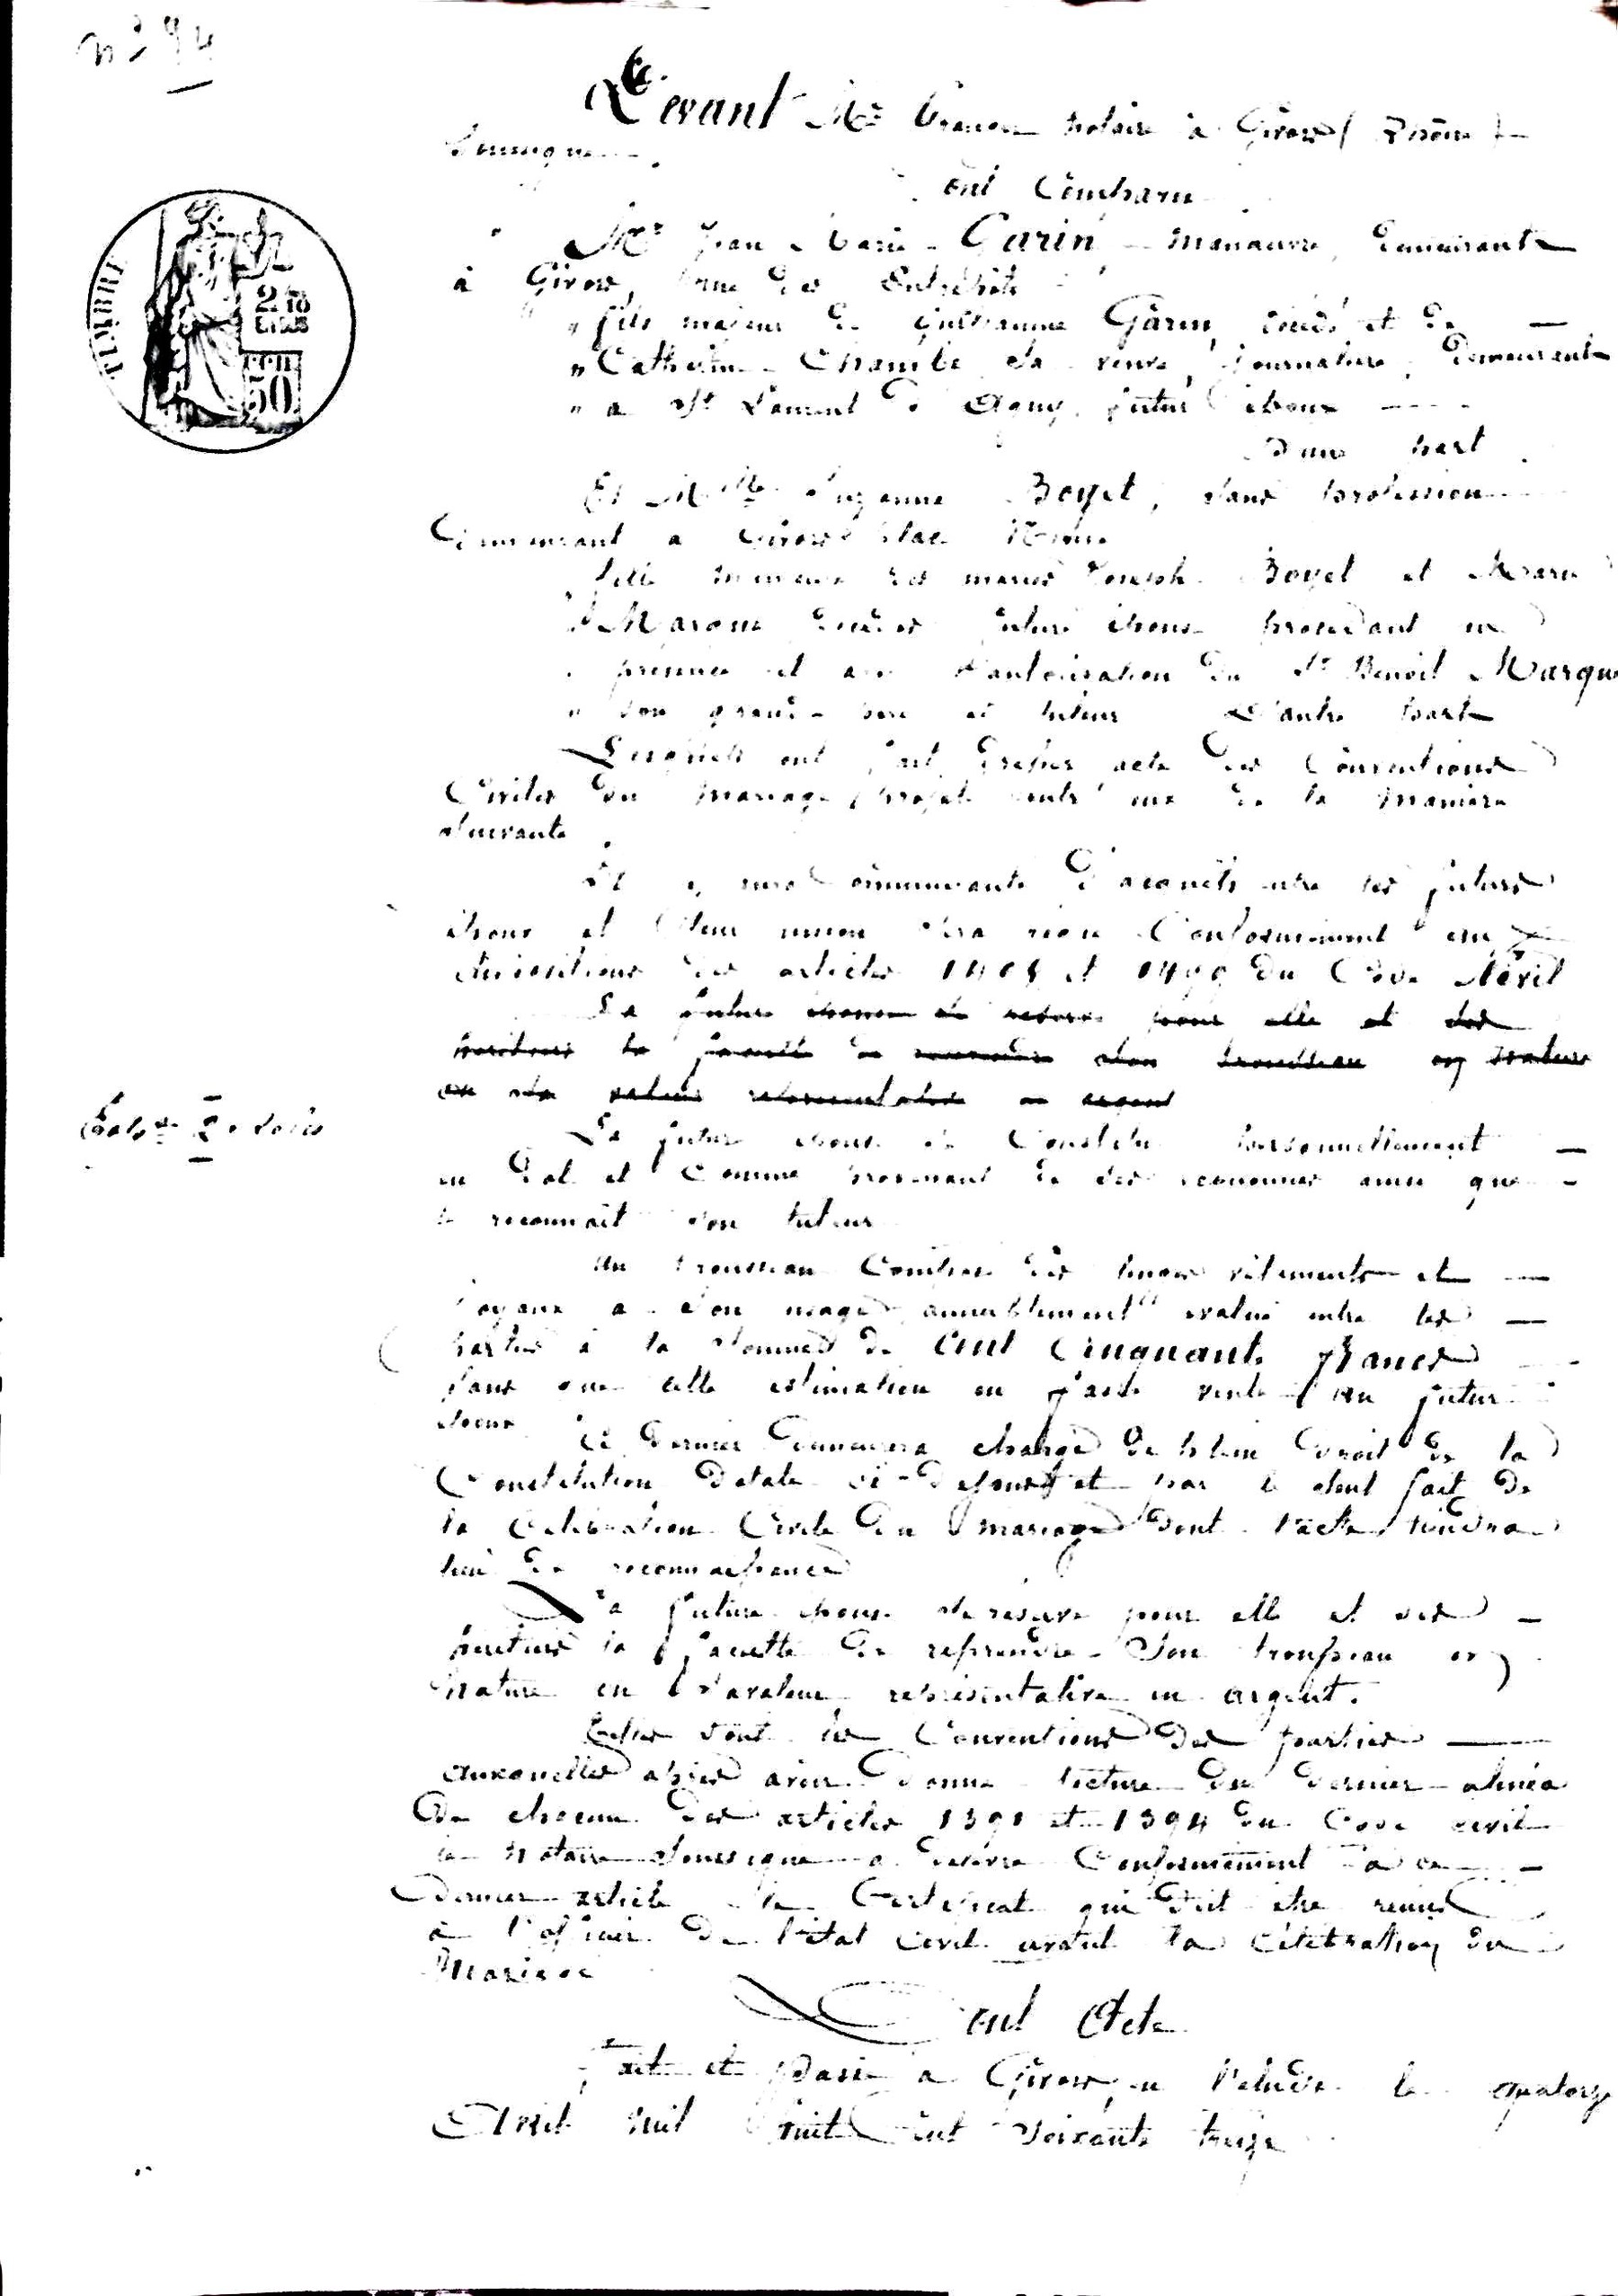 n° 94
Devant Me notaire à Givors (Rhône)
soussigné
ont Comparu
Mr Jean Marie Garin manœuvre, demeurant
à Givors, rue des Entrepôts
" fils majeur de Guillaume Garin, décédé et de
" Catherine sa veuve, journalière, demeurant
" à St Laurent d'Agny, futur époux
d'une part
Et Mlle Suzanne Boyet, sans profession
demeurant à Givors place
fille mineure des mariés Joseph Boyet et Marie
décédés future épouse procédant en
présence et avec l'autorisation du Sr Benoit
" son grand-père et tuteur D'autre part
Lesquels ont fait dresser acte des Conventions
Civiles du mariage projeté entr'eux de la manière
suivante
Il y aura communauté d'acquêts entre les futurs
époux et leur union sera régie Conformément aux
dispositions des articles 1498 et 1499 du Code Civil
La future épouse se réserve pour elle et ses
héritiers la faculté de reprendre son trousseau en nature
ou sa valeur représentative en argent
La future épouse se Constitue personnellement
en dot et Comme provenant de ses économies ainsi que
le reconnait son tuteur
Un trousseau Composé des linges vêtements et
joyaux à son usage amiablement évalué entre les
parties à la Somme de Cent Cinquante francs
sans que cette estimation en fasse vente au futur
époux
Ce dernier demeurera chargé de plein droit de la
Constitution dotale ci-dessus et par le seul fait de
la Célébration Civile du mariage dont l'acte tiendra
lieu de reconnaissance
La future épouse se réserve pour elle et ses
héritiers la faculté de reprendre Son trousseau en
nature ou sa valeur représentative en argent.
Telles sont les Conventions des parties
auxquelles après avoir donné lecture du dernier alinéa
De chacun des articles 1391 et 1394 du Code civil
le Notaire soussigné a délivré Conformément à ce
dernier article le Certificat qui doit être remis
à l'officier de l'état Civil avant la Célébration du
Mariage
Dont Acte
Fait et Passé à Givors, en l'étude le quatorze
Avril mil huit cent soixante treize